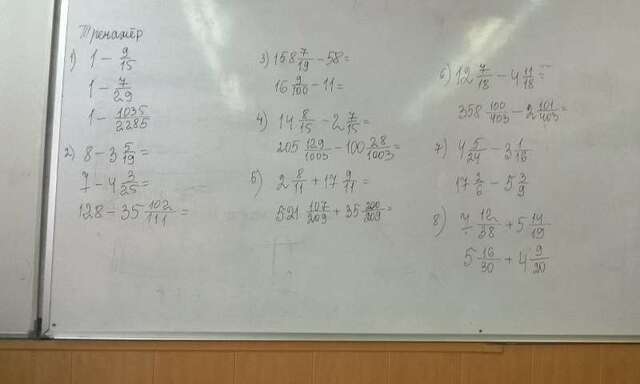 Тренажёр
1) 1 - 9/15
1 - 7/29
1 - 1035/2285
2) 8 - 3 5/19 =
7 - 4 3/25 =
128 - 35 102/111 =
3) 158 7/19 - 58 =
16 9/100 - 11 =
4) 14 8/15 - 2 7/15 =
205 129/1003 - 100 28/1003 =
5) 2 8/11 + 17 9/11 =
521 107/209 + 35 200/209 =
6) 12 7/18 - 4 11/18 =
358 100/403 - 2 101/403 =
7) 4 5/24 - 3 1/16
17 2/6 - 5 3/9
8) 7 12/38 + 5 14/19
5 16/30 + 4 9/20